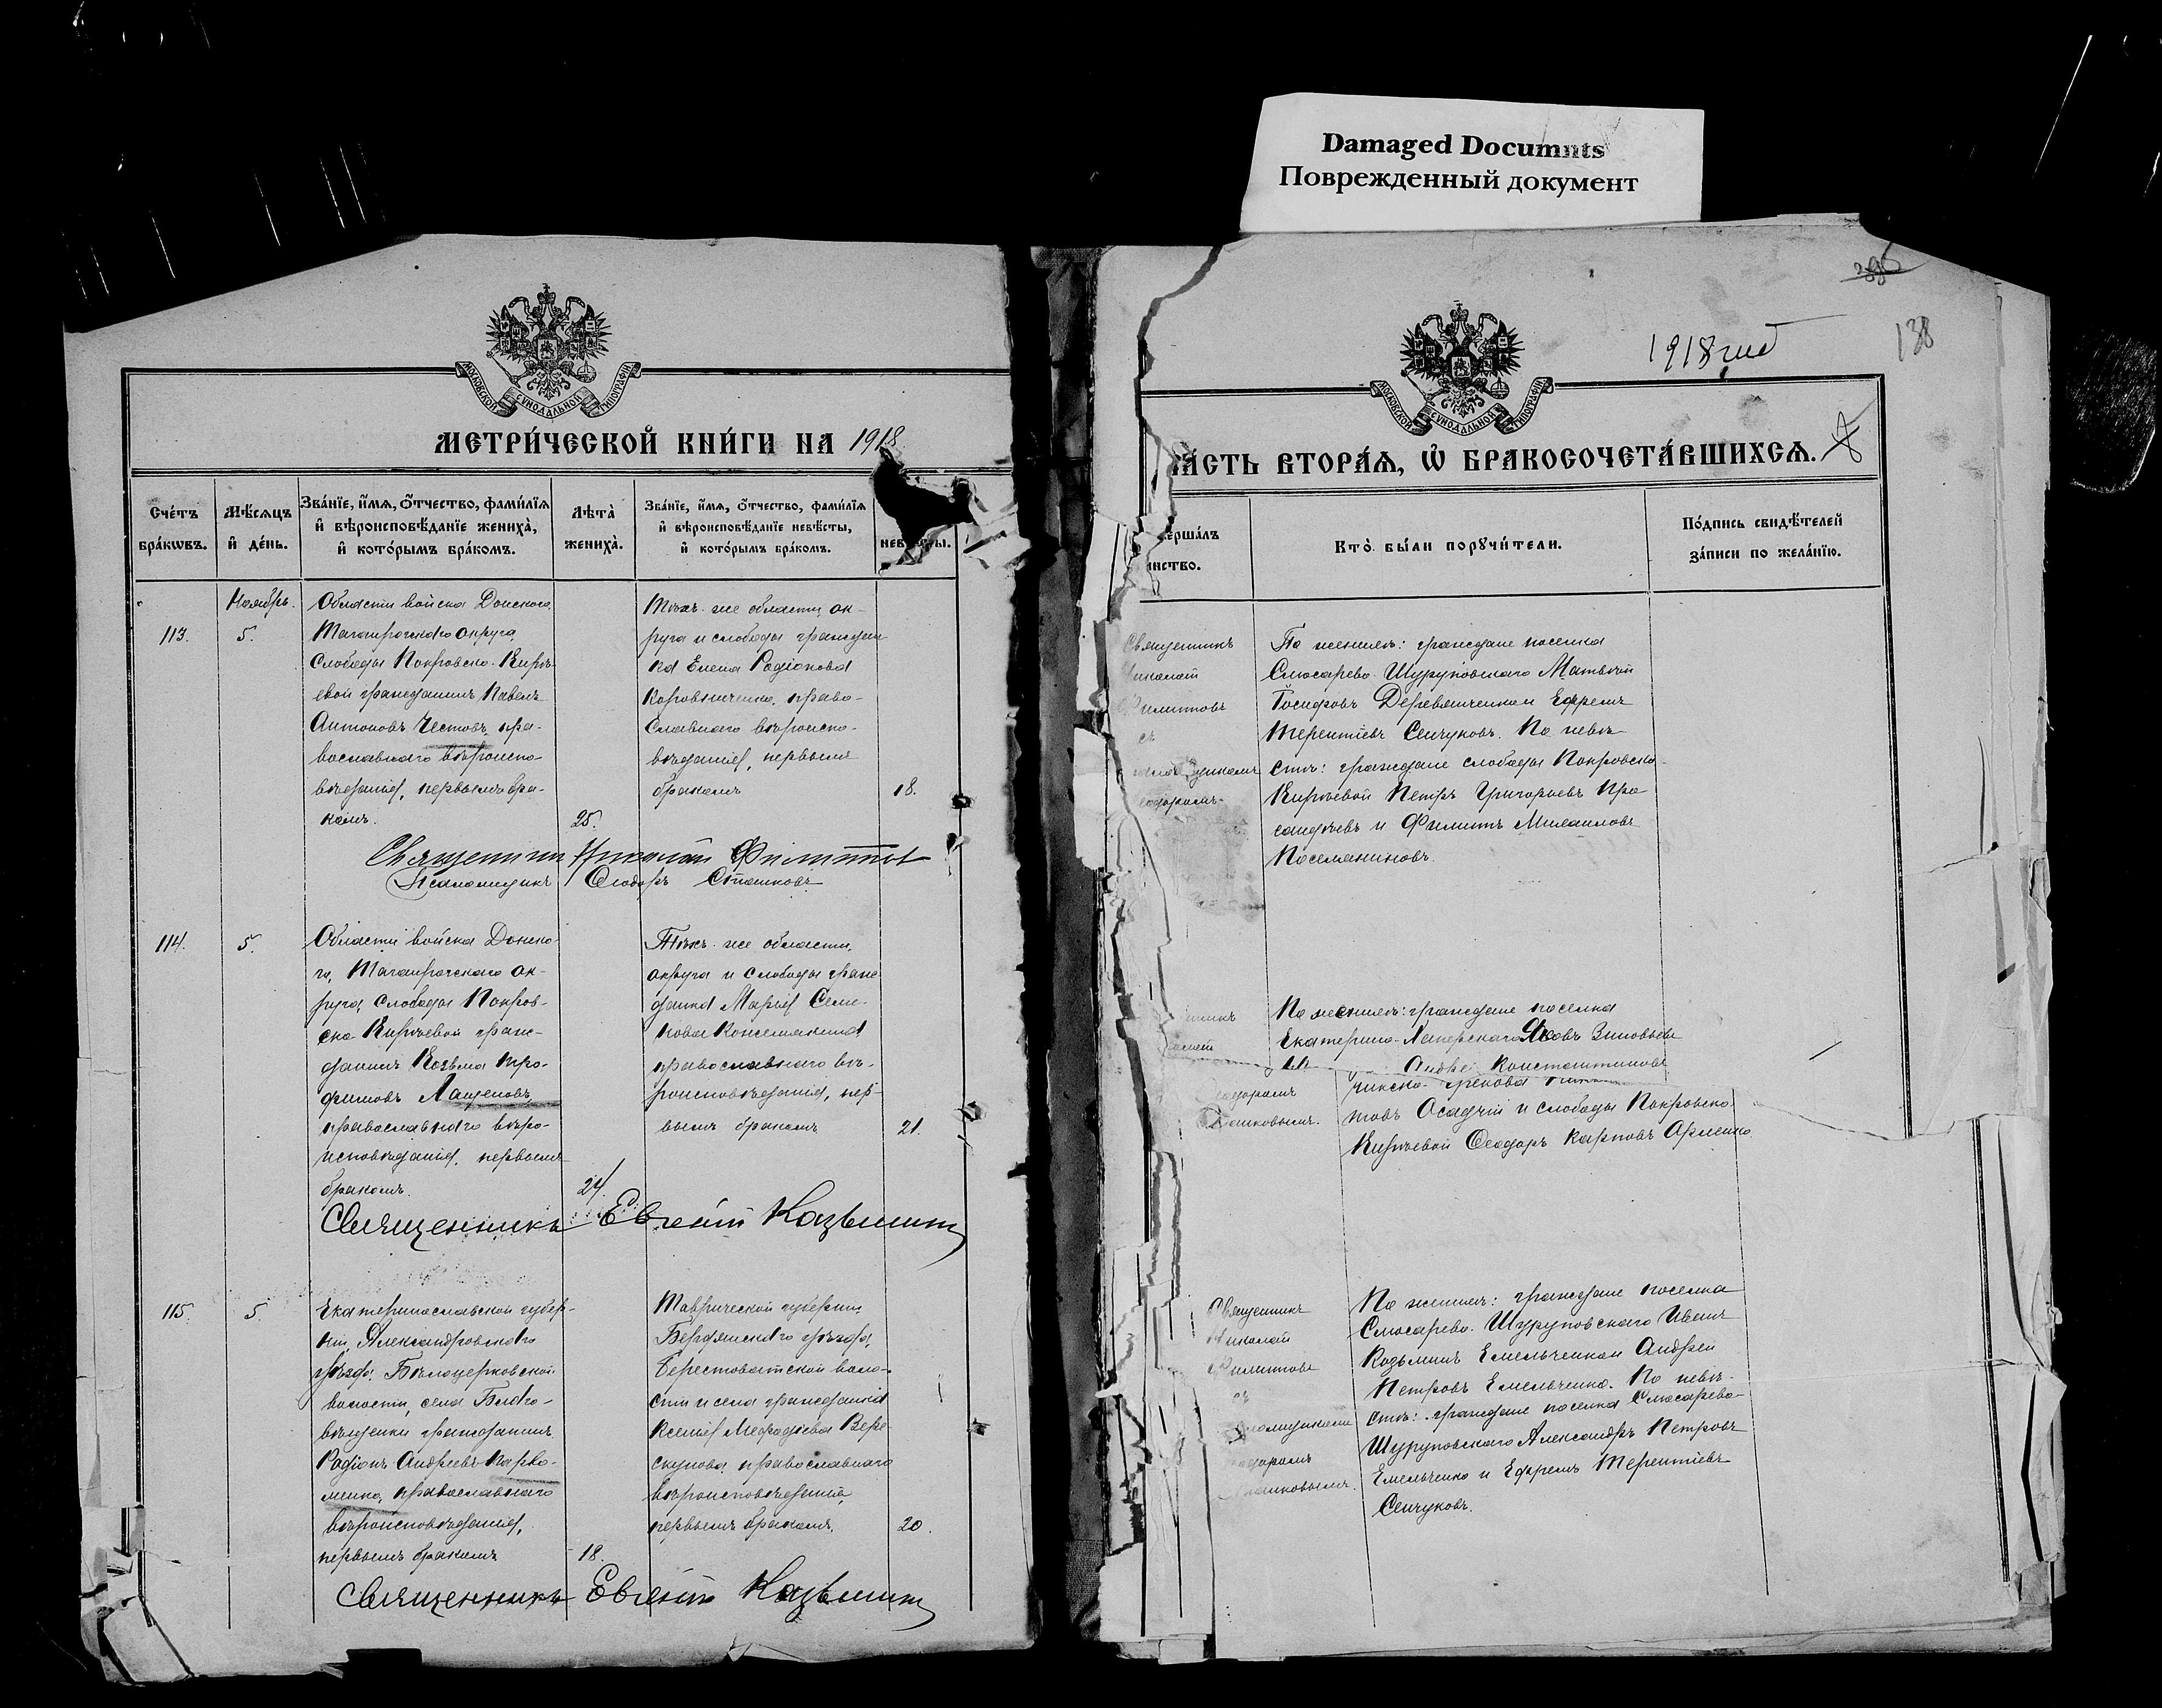 Damaged Documnts
Поврежденный документ
138
1918 год
МОСКОВСКОЙ СѴНОДАЛЬНОЙ ТИПОГРАФІИ
МЕТРИ́ЧЕСКОЙ КНИ́ГИ НА 1918
Сче́тъ бра́кѡвъ.
Мѣ́сѧцъ и҆ де́нь.
Зва́нїе, и҆́мѧ, ѻ҆́тчество, фамї́лїѧ
и҆ вѣроисповѣ́данїе жениха̀,
и҆ кото́рымъ бра́комъ.
Лѣ́та жениха̀.
Зва́нїе, и҆́мѧ, ѻ҆́тчество, фамї́лїѧ
и҆ вѣроисповѣ́данїе невѣ́сты,
и҆ кото́рымъ бра́комъ.
113.
Ноябрь.
5.
Области войска Донского,
Таганрогскаго округа,
слободы Покровско-Кирѣ-
евой гражданинъ Павелъ
Антоновъ Честовъ, пра-
вославнаго вѣроиспо-
вѣданія, первымъ бра-
комъ.
25.
Тѣхъ-же области, ок-
руга и слободы граждан
ка Елена Родіонова
Коровниченко, право-
славнаго вѣроиспо-
вѣданія, первымъ
бракомъ
18.
Священникъ Николай Филиппов
Псаломщикъ Ѳеодоръ Сташковъ
114.
5.
Области войска Донско-
го, Таганрогскаго ок-
руга, слободы Покров-
ско-Кирѣевой граж-
данинъ Козьма Тро-
фимовъ Лащеновъ,
православнаго вѣро-
исповѣданія, первымъ
бракомъ.
24.
Тѣхъ-же области,
округа и слободы граж
данка Марія Семе-
нова Кожемякина
православнаго вѣ-
роисповѣданія, пер-
вымъ бракомъ
21.
Священникъ Евгеній Козьминъ
115.
5.
Екатеринославской губер-
ніи, Александровскаго
уѣзда, Бѣлоцерковской
волости, села Благо-
вѣщенки гражданинъ
Родіонъ Андреевъ Пархо-
менко, православнаго
вѣроисповѣданія,
первымъ бракомъ
18.
Таврической губерніи,
Бердянскаго уѣзда,
Берестоватской воло-
сти и села гражданка
Ксенія Мефодіева Вере
скунова, православнаго
вѣроисповѣданія,
первымъ бракомъ,
20.
Священникъ Евгеній Козьминъ
МОСКОВСКОЙ СѴНОДАЛЬНОЙ ТИПОГРАФІИ
ЧА́СТЬ ВТОРА́Ѧ, Ѡ҆ БРАКОСОЧЕТА́ВШИХСѦ.
Кто̀ бы́ли порꙋчи́тели.
По́дпись свидѣ́телей
за́писи по жела́нїю.
Священникъ
Николай
Филипповъ
съ
По женихѣ: граждане поселка
Слюсарево-Шуруповскаго Матвѣй
Іосифовъ Деревянченко и Ефремъ
Терентіевъ Сенчуковъ. По невѣ-
стѣ: граждане слободы Покровско-
Кирѣевой Петръ Григорьевъ
и Филиппъ Михаиловъ
Поселяниновъ.
По женихѣ: граждане поселка
Яковъ Зиновьевъ
Андрей Константиновъ
товъ Осадчій и слободы Покровско-
Кирѣевой Ѳеодоръ Карповъ
Священникъ
Николай
Филипповъ
съ
По женихѣ: граждане поселка
Слюсарево-Шуруповскаго Иванъ
Козьминъ Емельченко и Андрей
Петровъ Емельченко. По невѣ-
стѣ: граждане поселка Слюсарево-
Шуруповскаго Александръ Петровъ
Емельченко и Ефремъ Терентіевъ
Сенчуковъ.